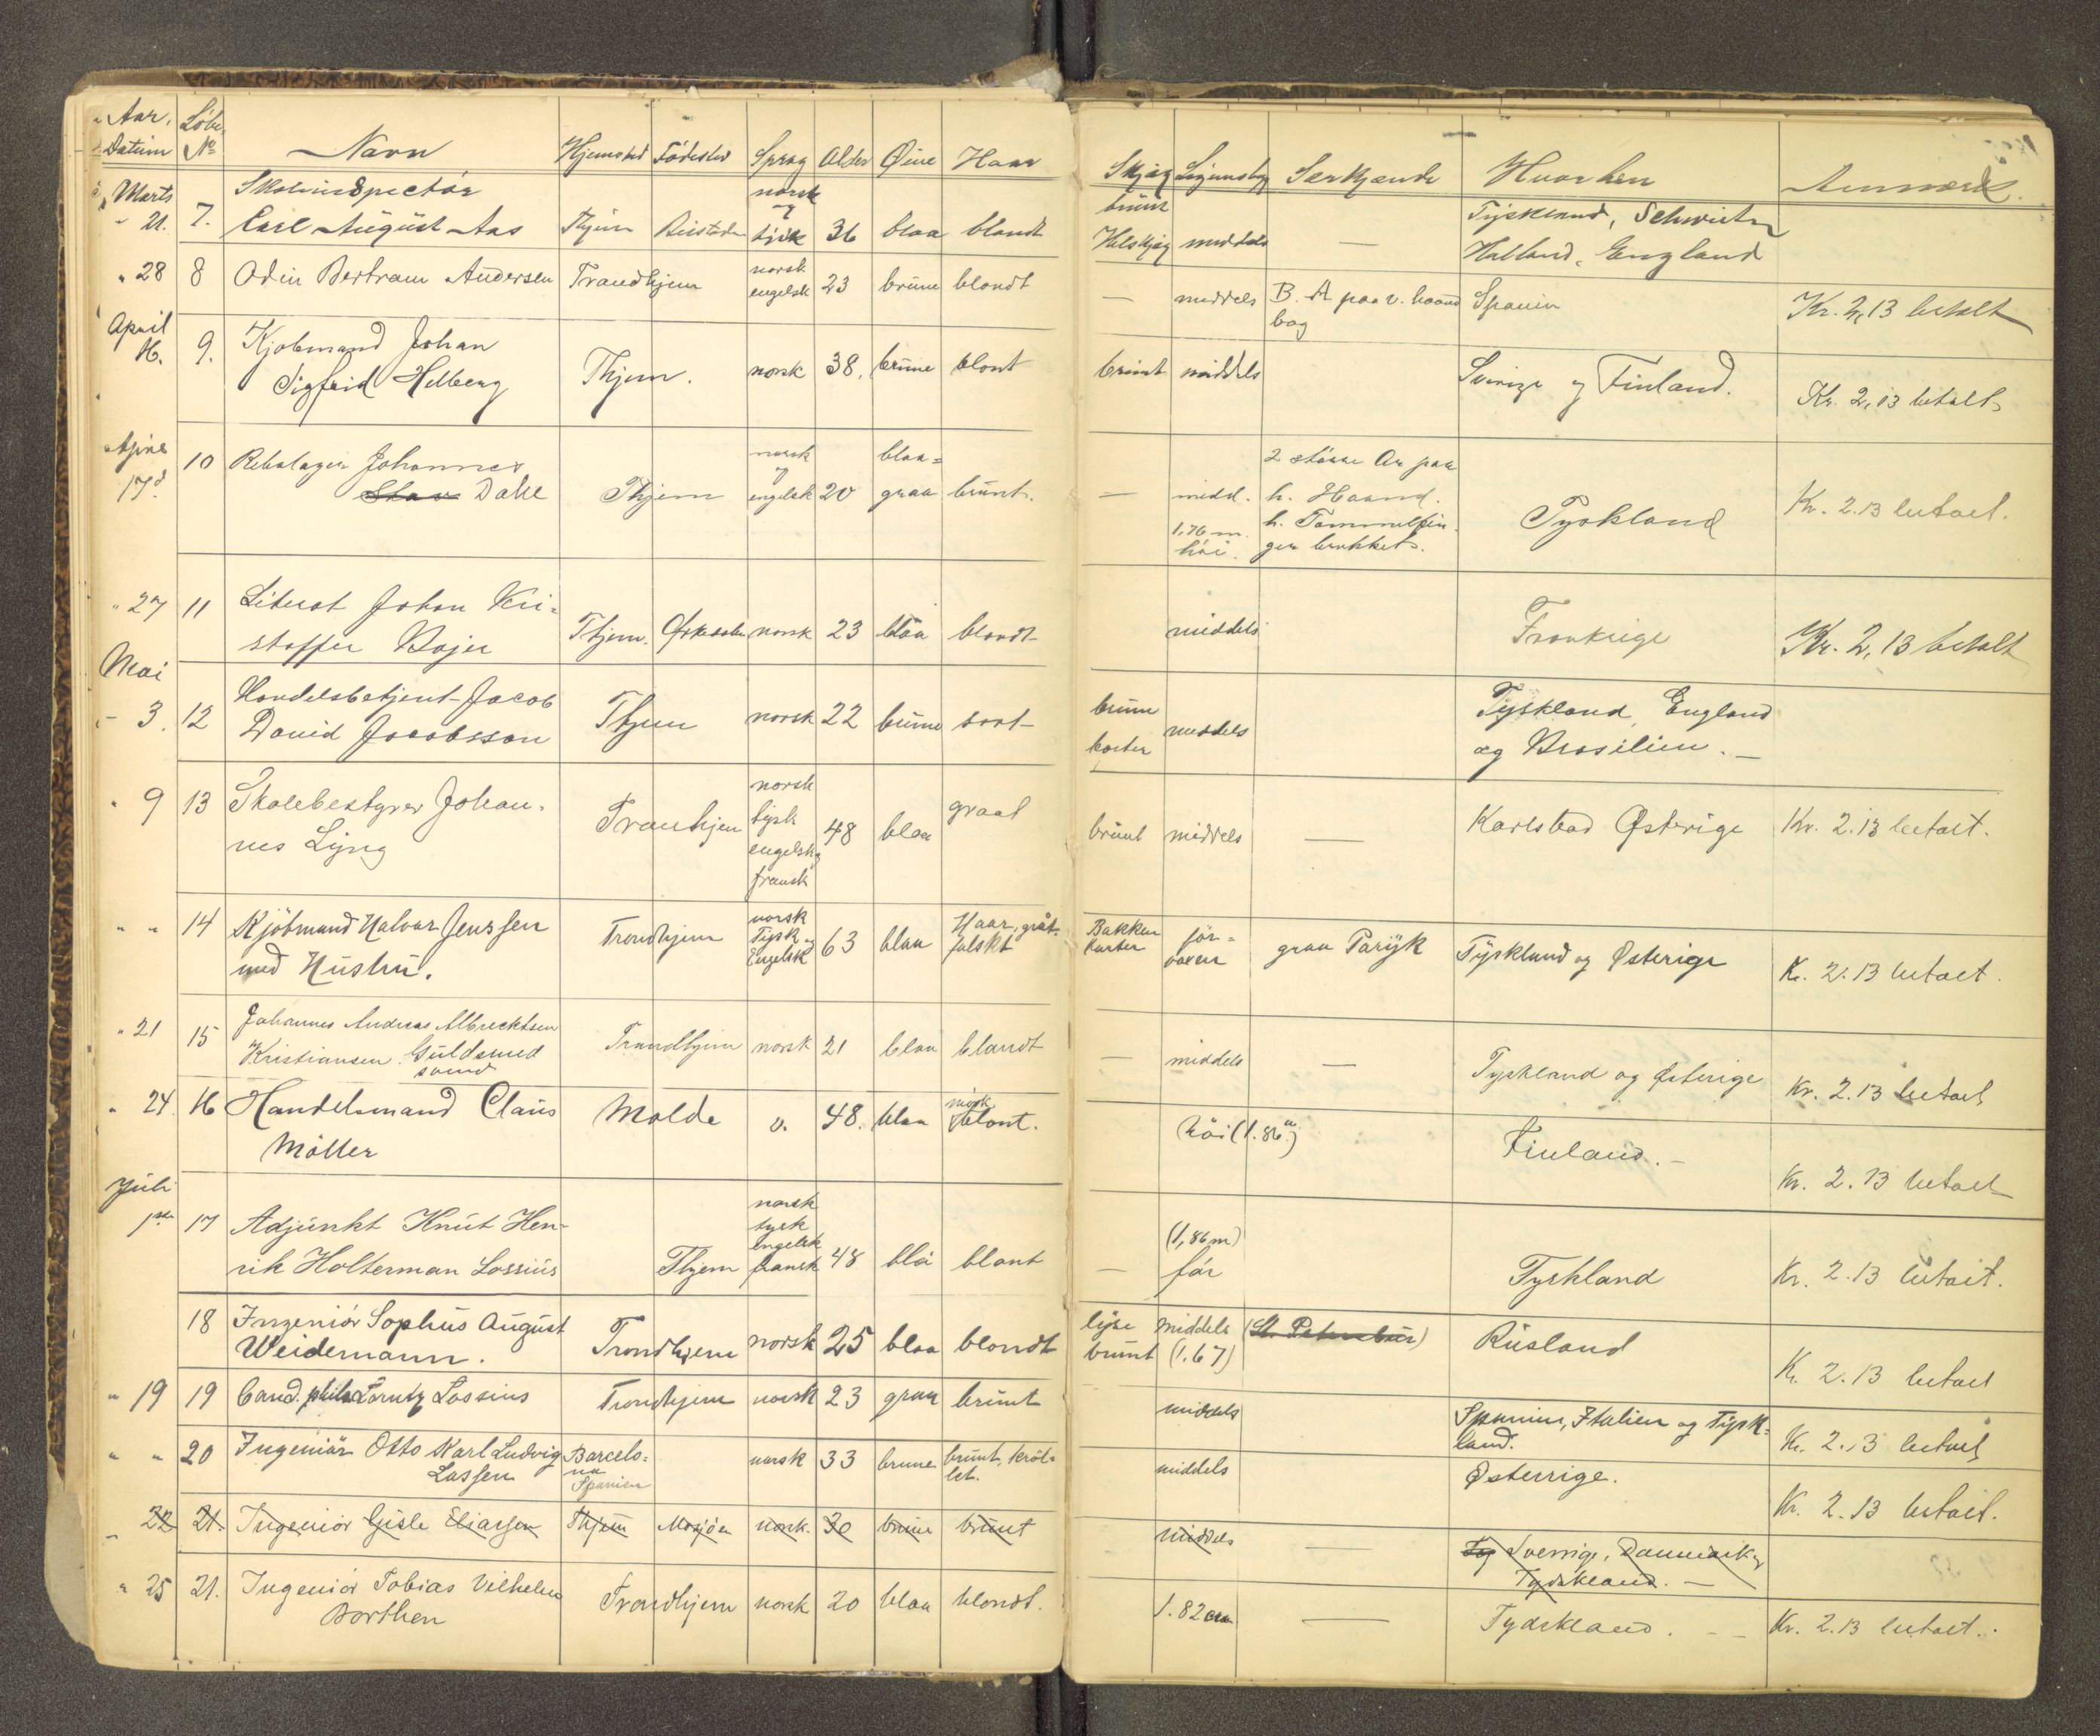 Aar. Datum Löbe No Navn Hjemsted Födested Sprog Alder Øine Haar Skjæg Særkjende Hvorhen Anmærk.
Marts 21. 7. Skoleinspectör Carl August Aas Thjem norsk og tysk 36 blaa blondt brunt Helskjæg middels — Tyskland, Schweitz Holland, England
" 28 8 Odin Bertram Andersen Trondhjem norsk engelsk 23 brune blondt — middels B. A paa v. haand bag Spanien Kr. 2,13 betalt
April 16. 9. Kjøbmand Johan Sigfrid Helberg Thjem. norsk 38. brune blont brunt middels Sverige og Finland. Kr. 2,13 betalt
April 17d 10 Johannes Dahl Thjem norsk og engelsk 20 blaa= graa brunt. — midd. 1,76 m. höi. 2 större Ar paa h. Haand. h. Tommelfin- ger brukket. Tyskland Kr. 2.13 betalt.
" 27 11 Literat Johan Kri= stoffer Bojer Thjem. Ørkedalen norsk 23 blåa blondt middels Frankrige Kr. 2,13 betalt
Mai 3. 12 Handelsbetjent Jacob David Jacobsson Thjem norsk 22 brune sort brune korter middels Tyskland, England og Brasilien. —
" 9 13 Skolebestyrer Johan- nes Lyng Tronhjem norsk tysk engelsk og fransk 48 blaa graat brunt middels — Karlsbad Østerige Kr. 2.13 betalt.
" " 14 Kjöbmand Halvor Jenssen med Hustru. Trondhjem norsk Tysk og Engelsk 63 blaa Haar, gråt. falskt Bakken karter för= voxen graa Paryk Tyskland og Østerige Kr. 2.13 betalt.
" 21 15 Johannes Andreas Albrecktsen Kristiansen Guldsmed svend Trondhjem norsk 21 blaa blondt — middels — Tyskland og Østerige Kr. 2.13 betalt
" 24. 16 Handelsmand Claus Möller Molde n. 48. blaa mörk blont. höi (1.86m) Finland. — Kr. 2.13 betalt
Juli 1ste 17 Adjunkt Knut Hen- rik Holterman Lossius Thjem norsk tysk engelsk fransk 48 blå blont — (1,86 m) för Tyskland Kr. 2.13 betalt.
18 Ingeniör Sophus August Weidemann. Trondhjem norsk 25 blaa blondt lyse brunt middels (1.67) (St. Petersburg) Rusland Kr. 2.13 betalt
" 19 19 Cand. philos Lorntz Lossius Trondhjem norsk 23 graa brunt middels Spanien, Italien og Tysk- land. Kr. 2.13 betalt
" " 20 Ingeniär Otto Karl Ludvig Lassen Barcelo= na Spanien norsk 33 brune brunt, kröl- let. middels Østerrige. Kr. 2.13 betalt.
" 22 21. Ingeniör Gisle Eliassen Thjem Mosjöen norsk. 30 brune brunt middels — Sverrige, Danmark og Tydskland. —
" 25 21. Ingeniör Tobias Vilhelm Borthen Trondhjem norsk 20 blaa blondt. 1.82 cm — Tydskland. — Kr. 2.13 betalt.